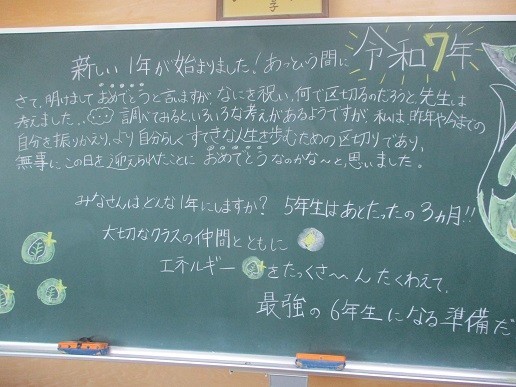 令和7年
新しい1年が始まりました!あっという間に
さて、明けましておめでとうと言いますが、なにを祝い、何で区切るのだろうと、先生は
考えました…調べてみるといろいろな考えがあるようですが、私は昨年や今までの
自分を振りかえり、より自分らしくすてきな人生を歩むための区切りであり、
無事にこの日を迎えられたことにおめでとうなのかな〜と、思いました。
みなさんはどんな1年にしますか? 5年生はあとたったの3ヵ月!!
大切なクラスの仲間とともに
エネルギーをたっくさ〜んたくわえて、
最強の6年生になる準備だ